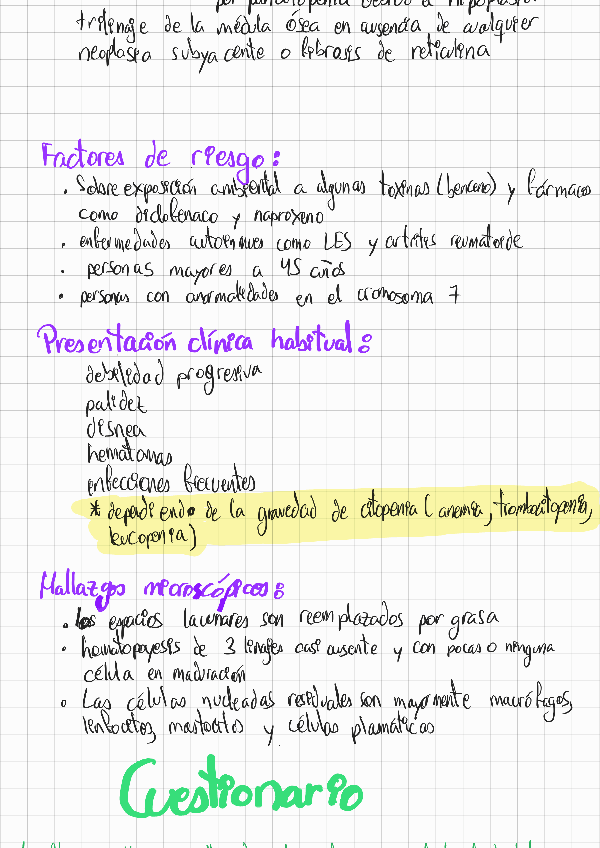 trilinaje de la médula ósea en ausencia de cualquier
neoplasia subyacente o fibrosis de reticulina
Factores de riesgo:
• Sobre exposición ambiental a algunas toxinas (benceno) y fármacos
como diclofenaco y naproxeno
• enfermedades autoinmunes como LES y artritis reumatoide
• personas mayores a 45 años
• personas con anormalidades en el cromosoma 7
Presentación clínica habitual:
debilidad progresiva
palidez
disnea
hematomas
infecciones frecuentes
* dependiendo de la gravedad de citopenia (anemia, trombocitopenia,
leucopenia)
Hallazgos microscópicos:
• los espacios lacunares son reemplazados por grasa
• hematopoyesis de 3 linajes casi ausente y con pocas o ninguna
célula en maduración
• Las células nucleadas residuales son mayormente macrófagos,
linfocitos, mastocitos y células plasmáticas
Cuestionario